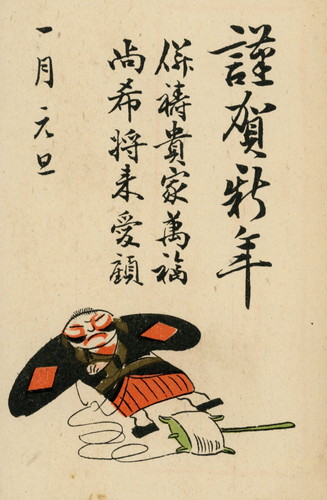 謹賀新年
併祷貴家萬福
尚希将来愛顧
一月元旦